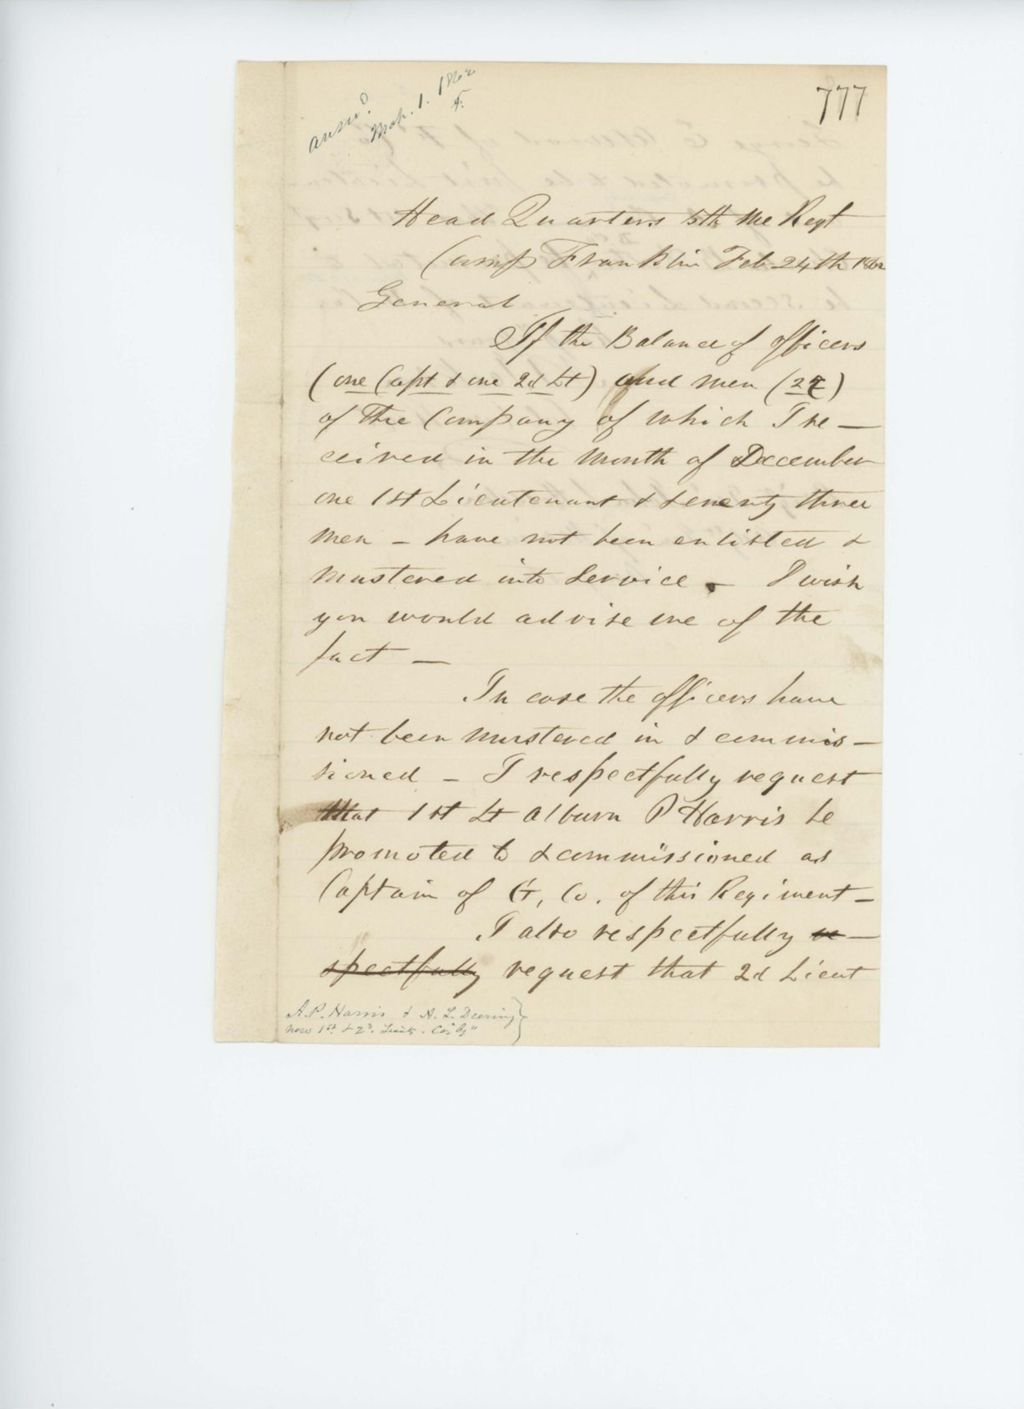 answd
Mch. 1. 1862
777
Head Quarters 5th Me Regt
Camp Franklin Feb 24th 1862
General
If the Balance of officers
(one Capt & one 2d Lt) and men (27)
of the Company of which I re—
ceived in the Month of December
one 1st Lieutenant & seventy three
men — have not been enlisted &
mustered into Service — I wish
you would advise me of the
fact —
In case the officers have
not been mustered in & commis—
sioned — I respectfully request
that 1st Lt Alburn P Harris be
promoted to & commissioned as
Captain of G, Co. of this Regiment —
I also respectfully re—
spectfully request that 2d Lieut
A. P. Harris & A. L. Deering
now 1st & 2d. Lieuts. Co "G"